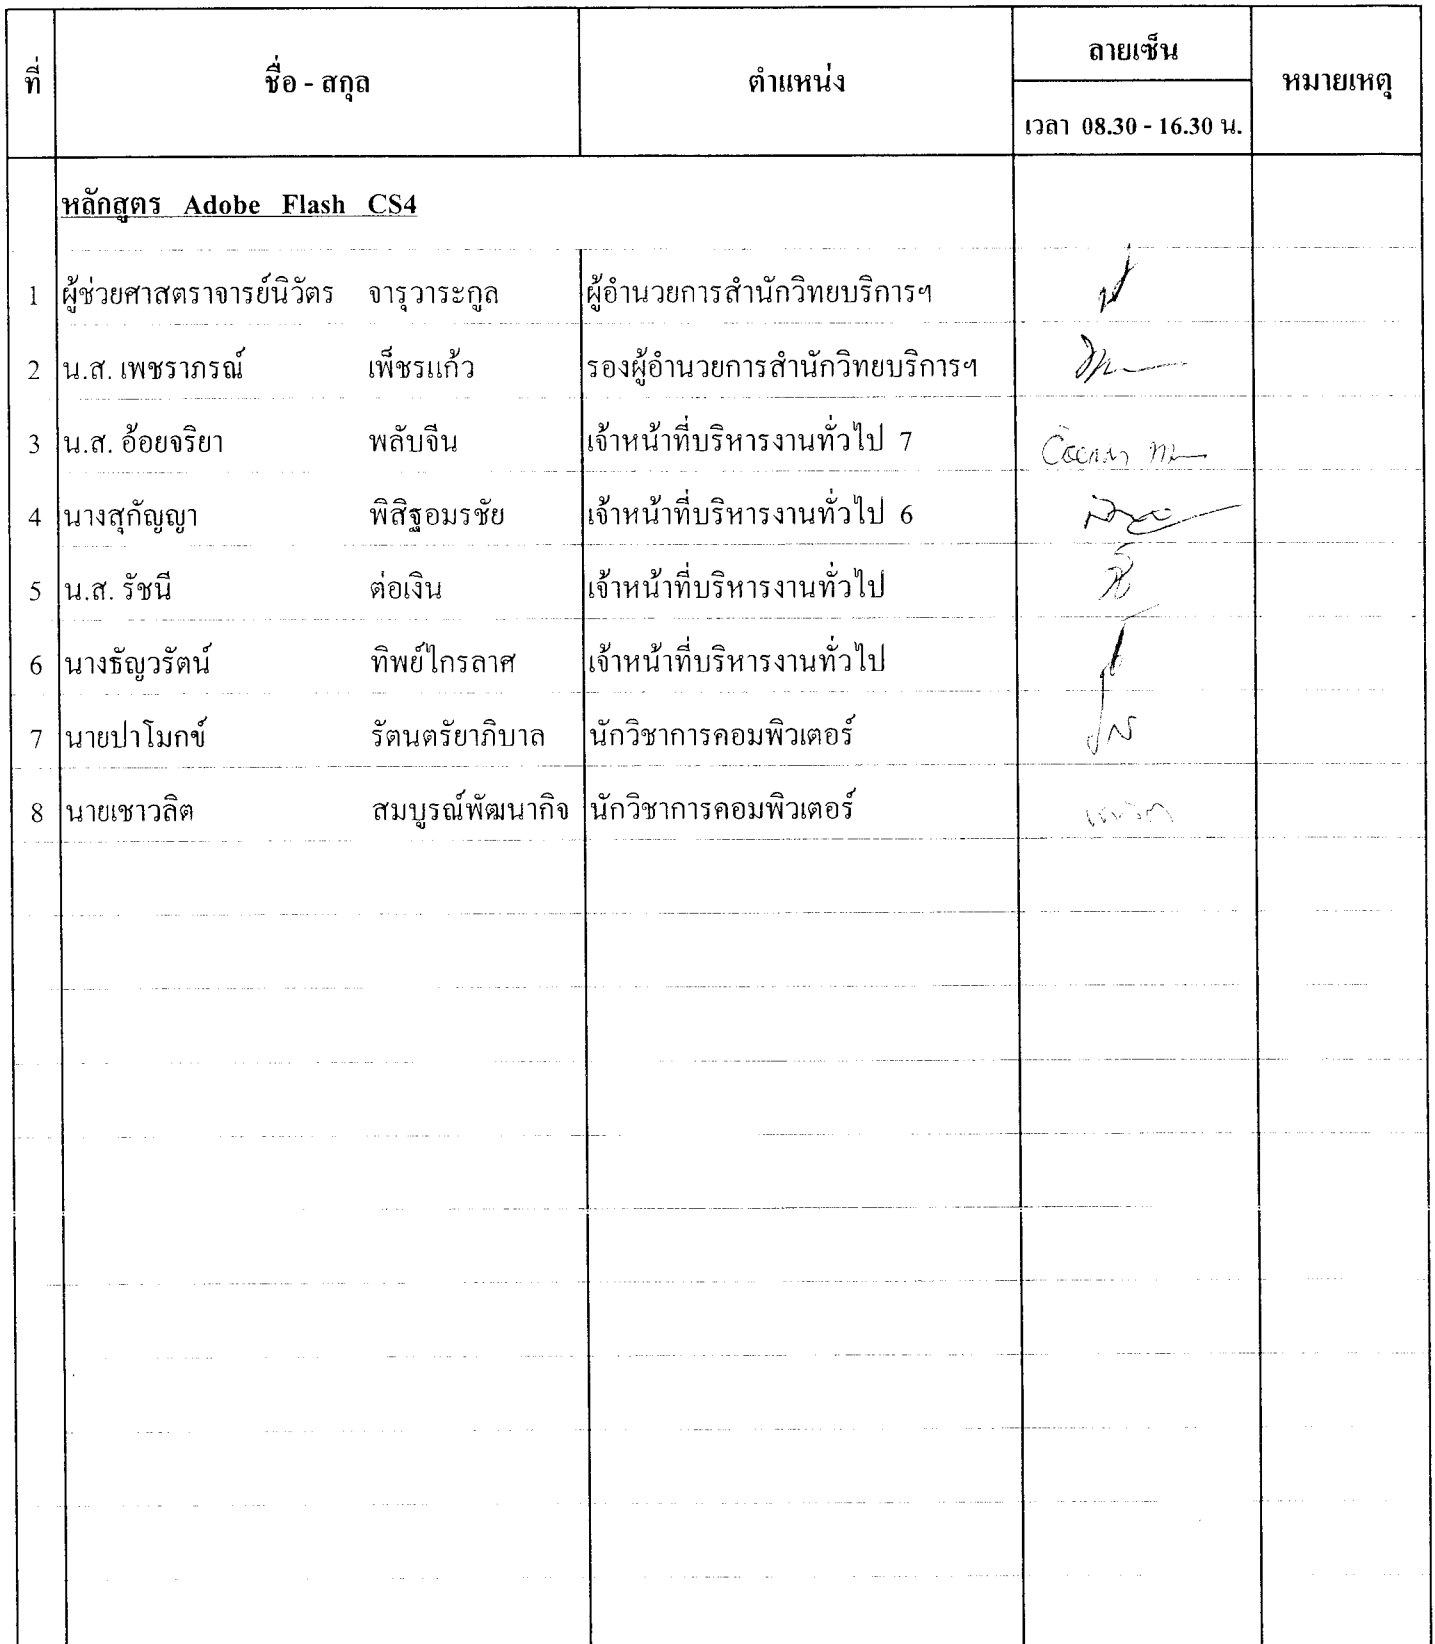 ที่ ชื่อ - สกุล ตำแหน่ง ลายเซ็น หมายเหตุ
เวลา 08.30 - 16.30 น.
หลักสูตร Adobe Flash CS4
1 ผู้ช่วยศาสตราจารย์นิวัตร จารุวาระกูล ผู้อำนวยการสำนักวิทยบริการฯ
2 น.ส. เพชราภรณ์ เพ็ชรแก้ว รองผู้อำนวยการสำนักวิทยบริการฯ
3 น.ส. อ้อยจริยา พลับจีน เจ้าหน้าที่บริหารงานทั่วไป 7
4 นางสุกัญญา พิสิฐอมรชัย เจ้าหน้าที่บริหารงานทั่วไป 6
5 น.ส. รัชนี ต่อเงิน เจ้าหน้าที่บริหารงานทั่วไป
6 นางธัญวรัตน์ ทิพย์ไกรลาศ เจ้าหน้าที่บริหารงานทั่วไป
7 นายปาโมกข์ รัตนตรัยาภิบาล นักวิชาการคอมพิวเตอร์
8 นายเชาวลิต สมบูรณ์พัฒนากิจ นักวิชาการคอมพิวเตอร์